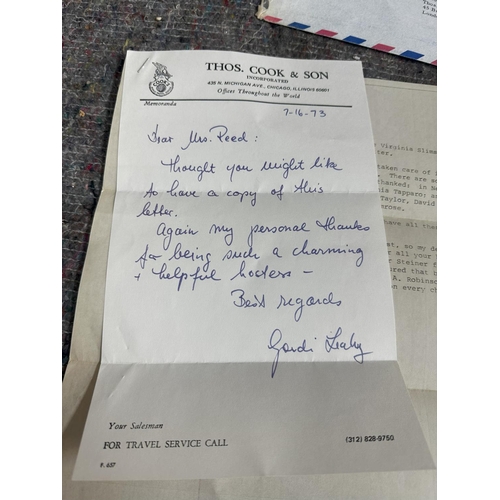 THOS. COOK & SON
INCORPORATED
435 N. MICHIGAN AVE., CHICAGO, ILLINOIS 60601
Offices Throughout the World
Memoranda
7-16-73
Dear Mrs. Reed:
Thought you might like
to have a copy of this
letter.
Again my personal thanks
for being such a charming
+ helpful hostess -
Best regards
Your Salesman
FOR TRAVEL SERVICE CALL
(312) 828-9750
F. 657
Virginia Slims
taken care of
There are
thanked; in
Tapparo;
Taylor, David
have all
so my
all your
of Steiner
that
A. Robinson
on every